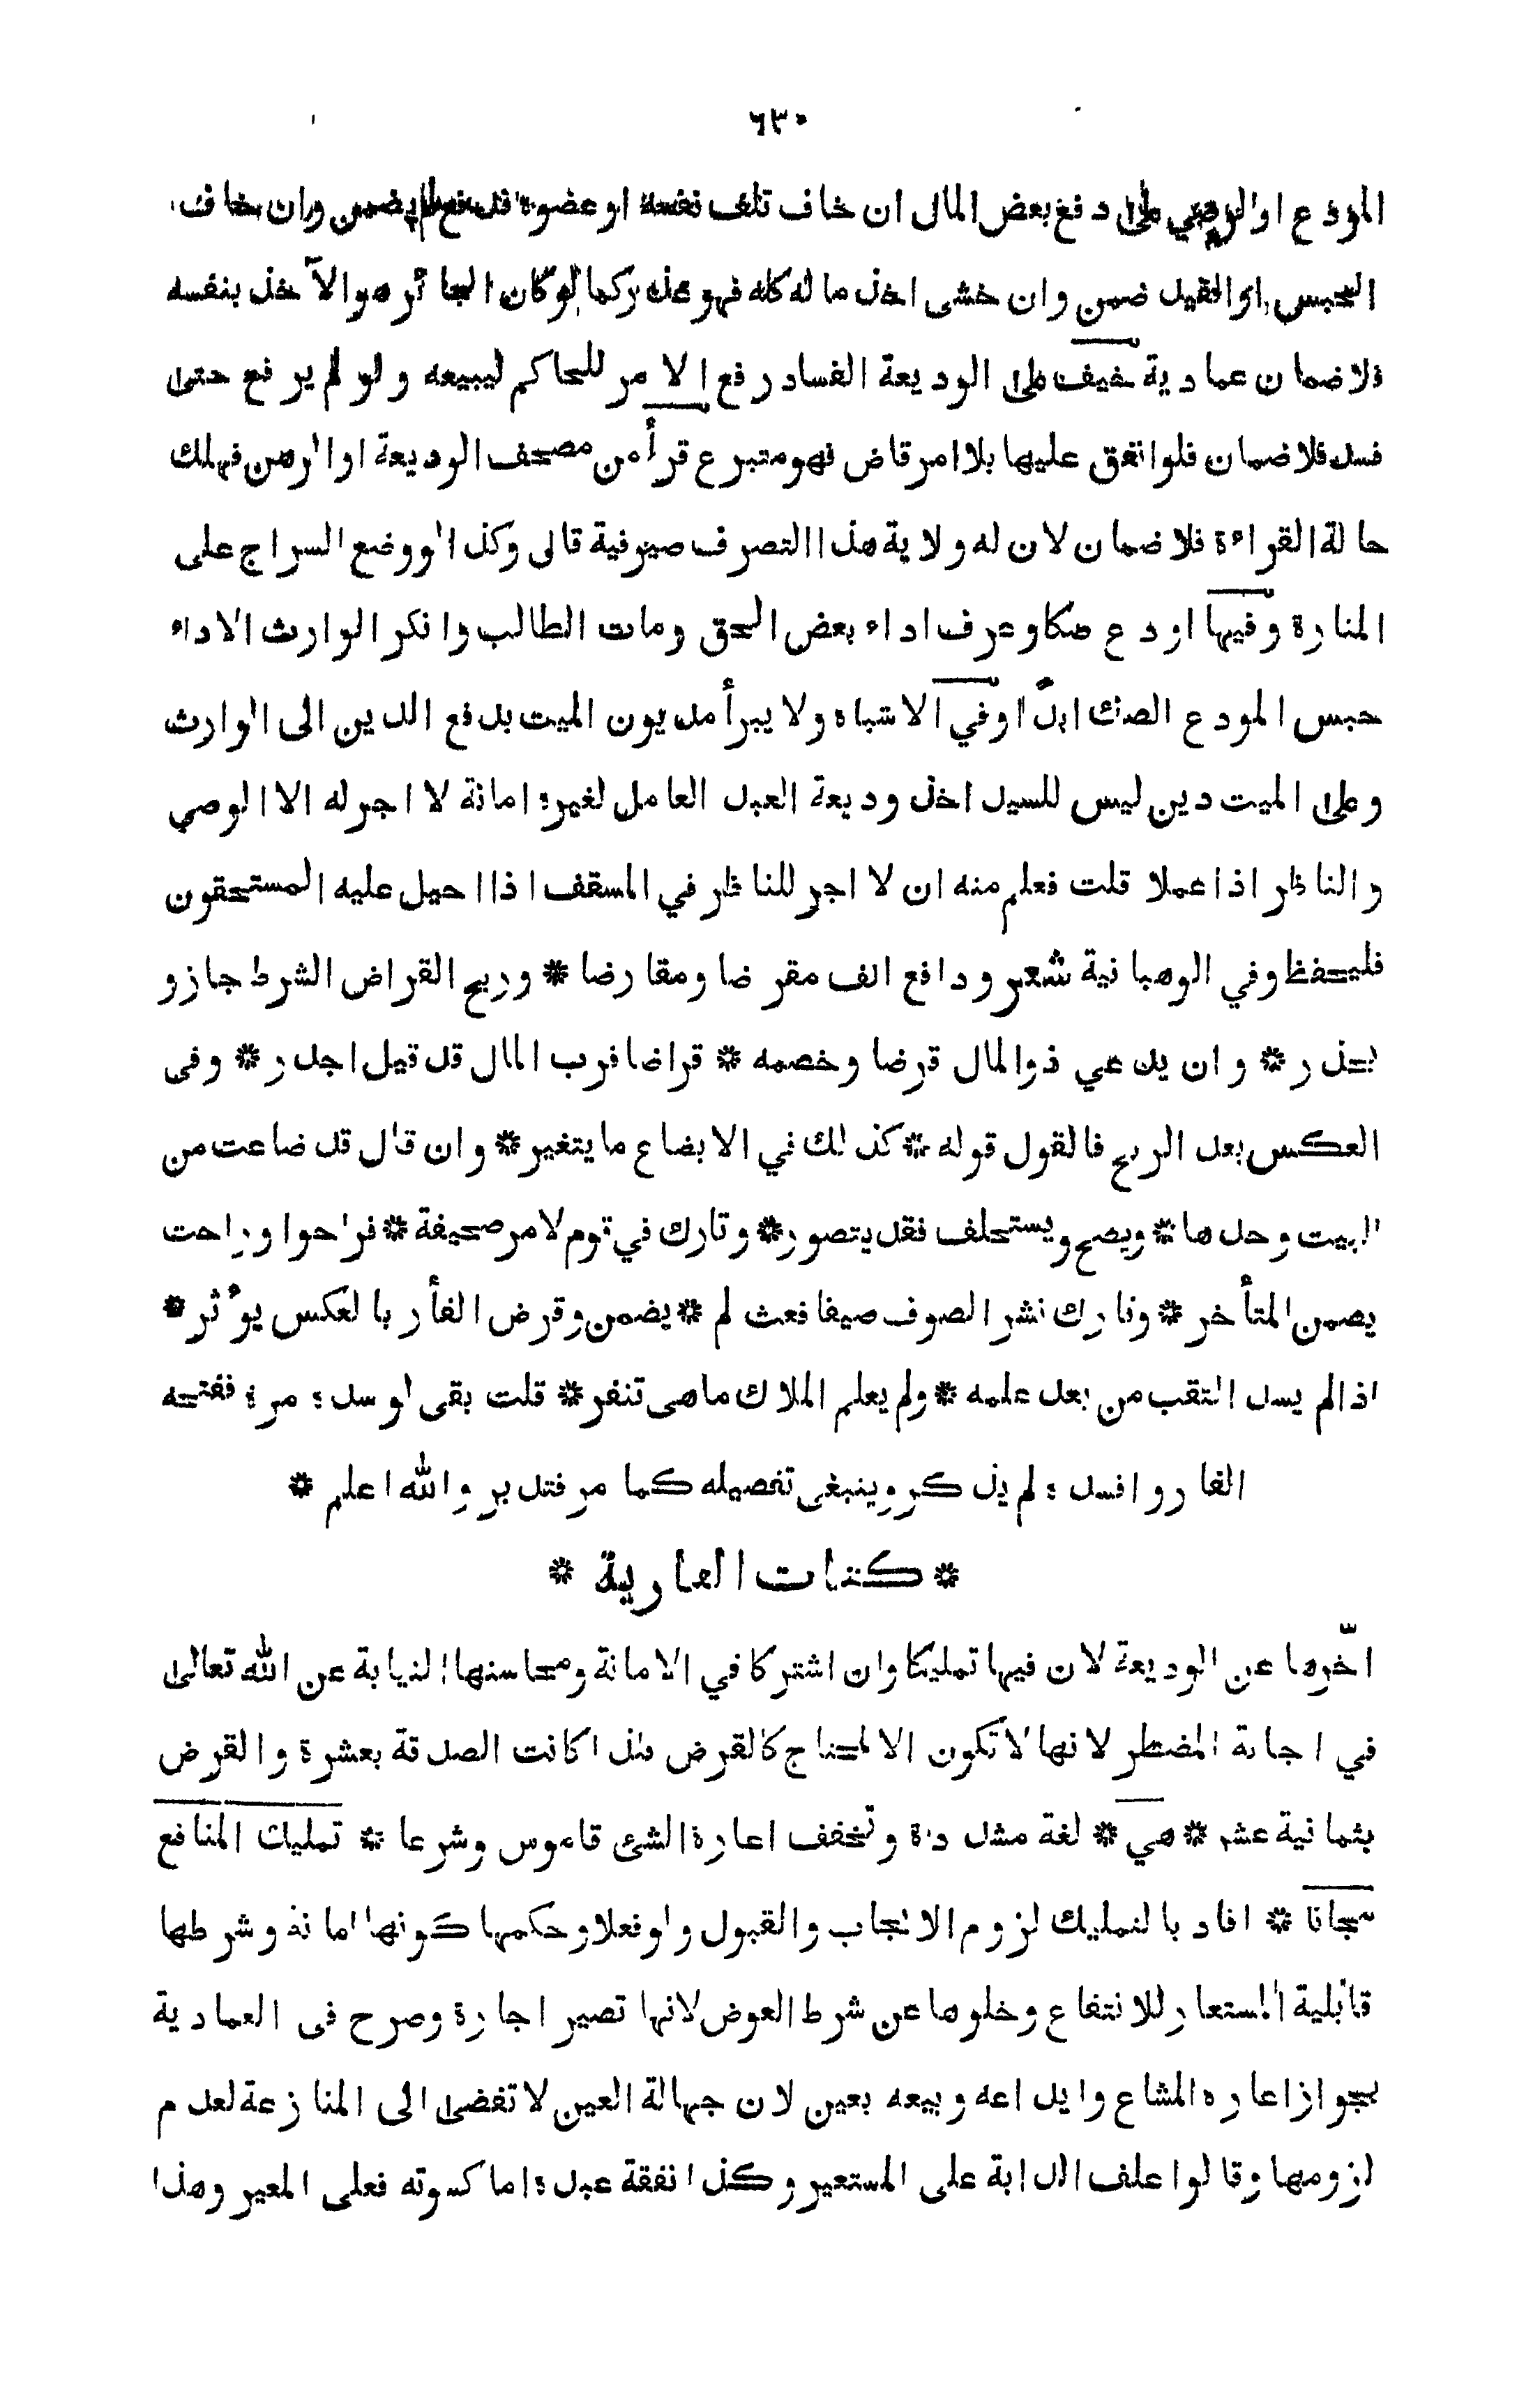 ٦٣٠
المودع اوالوصي على دفع بعض المال ان خاف تلف نفسه اوعضوه فدفع لم يضمن وان خاف
الحبس اوالقيد ضمن وان خشى اخذ ماله كله فهو عذر كما لوكان الجائر هوالآخذ بنفسه
فلاضمان عمادية خيف على الوديعة الفساد رفع الامر للحاكم ليبيعه ولو لم يرفع حتى
فسد فلاضمان فلوانفق عليها بلاامرقاض فهومتبرع قرأ من مصحف الوديعة اوالرهن فهلك
حالة القراءة فلاضمان لان له ولاية هذا التصرف صيرفية قال وكذا لووضع السراج على
المنارة وفيها اودع صكا وعرف اداء بعض الحق ومات الطالب وانكر الوارث الاداء
حبس المودع الصك ابدًا وفي الاشباه ولا يبرأ مديون الميت بدفع الدين الى الوارث
وعلى الميت دين ليس للسيد اخذ وديعة العبد العامل لغيره امانة لا اجرله الا الوصي
والناظر اذا عملا قلت فعلم منه ان لا اجر للناظر في المسقف اذا احيل عليه المستحقون
فليحفظ وفي الوهبانية شعر ودافع الف مقرضا ومقارضا * وربح القراض الشرط جاز و
يحذر * وان يدعي ذوالمال قرضا وخصمه * قراضا فرب المال قد قيل اجدر * وفى
العكس بعد الربح فالقول قوله * كذلك في الابضاع مايتغير * وان قال قد ضاعت من
البيت وحدها * ويصح ويستحلف فقد يتصور * وتارك في قوم لامر صحيفة * فراحوا وراحت
يضمن المتأخر * وتارك نشر الصوف صيفا فعث لم * يضمن وقرض الفأر بالعكس يؤثر *
اذالم يسد الثقب من بعد علمه * ولم يعلم الملاك ماهى تنفر * قلت بقى لوسده مرة ففتحه
الفار وافسده لم يذكر وينبغى تفصيله كما مر فتدبر والله اعلم *
* كتاب العارية *
اخّرها عن الوديعة لان فيها تمليكا وان اشتركا في الامانة ومحاسنها النيابة عن الله تعالى
في اجابة المضطر لانها لاتكون الا لمحتاج كالقرض فلذا كانت الصدقة بعشرة والقرض
بثمانية عشر * هي * لغة مشددة وتخفف اعارة الشئ قاموس وشرعا * تمليك المنافع
مجانا * افاد بالتمليك لزوم الايجاب والقبول ولوفعلا وحكمها كونها امانة وشرطها
قابلية المستعار للانتفاع وخلوها عن شرط العوض لانها تصير اجارة وصرح فى العمادية
بجواز اعاره المشاع وايداعه وبيعه بعين لان جهالة العين لاتفضى الى المنازعة لعدم
لزومها وقالوا علف الدابة على المستعير وكذا نفقة عبده اما كسوته فعلى المعير وهذا